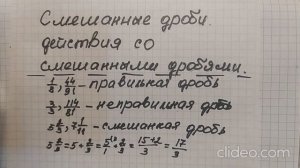 Смешанные дроби.
действия со
смешанными дробями.
1/8, 44/91 - правильная дробь
3/3, 114/81 - неправильная дробь
5 2/3, 7 1/11 - смешанная дробь
5 2/3 = 5 + 2/3 = 5/1 + 2/3 = 15+2/3 = 17/3
clideo.com